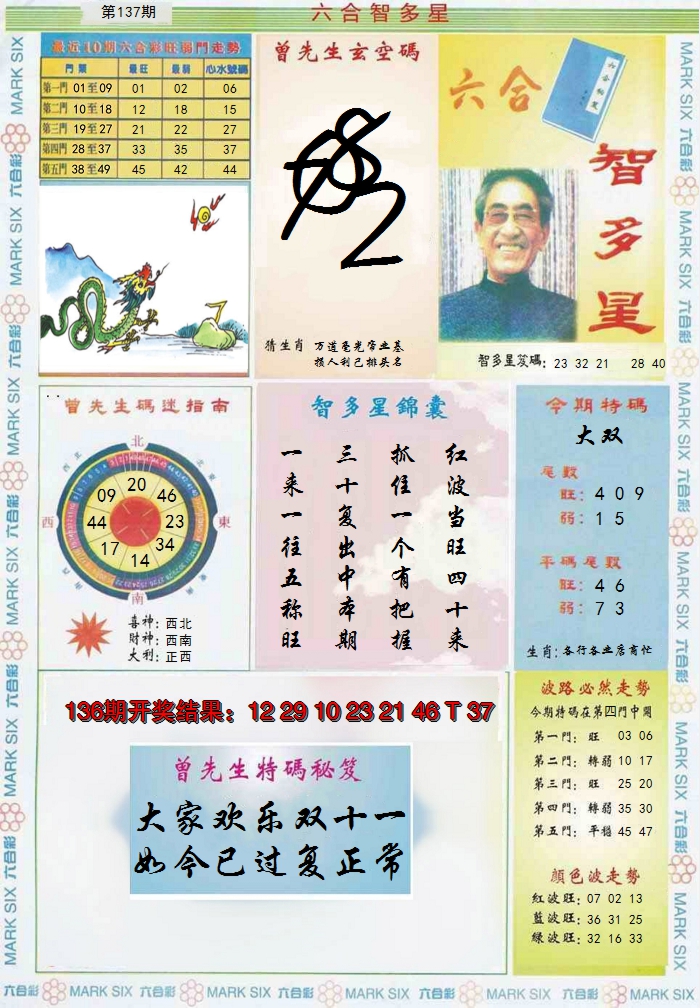 第137期
六合智多星
最近10期六合彩旺弱門走勢
門票 最旺 最弱 心水號碼
第一門 01至09 01 02 06
第二門 10至18 12 18 15
第三門 19至27 21 22 27
第四門 28至37 33 35 37
第五門 38至49 45 42 44
曾先生玄空碼
猜生肖 万道毫光常业基
损人利己排头名
六合
智多星
智多星笈碼: 23 32 21 28 40
曾先生碼迷指南
北
東
南
西
20
46
23
34
14
17
44
09
喜神: 西北
財神: 西南
大利: 正西
智多星錦囊
红波当旺四十来
抓住一个有把握
三十复出中本期
一来一往五称旺
今期特碼
大双
尾數
旺: 4 0 9
弱: 1 5
平碼尾數
旺: 4 6
弱: 7 3
生肖: 各行各业居商忙
136期开奖结果: 12 29 10 23 21 46 T 37
曾先生特碼秘笈
大家欢乐双十一
如今已过复正常
波路必然走勢
今期特碼在第四門中開
第一門: 旺 03 06
第二門: 轉弱 10 17
第三門: 旺 25 20
第四門: 轉弱 35 30
第五門: 平穩 45 47
顏色波走勢
紅波旺: 07 02 13
藍波旺: 36 31 25
綠波旺: 32 16 33
MARK SIX 六合彩